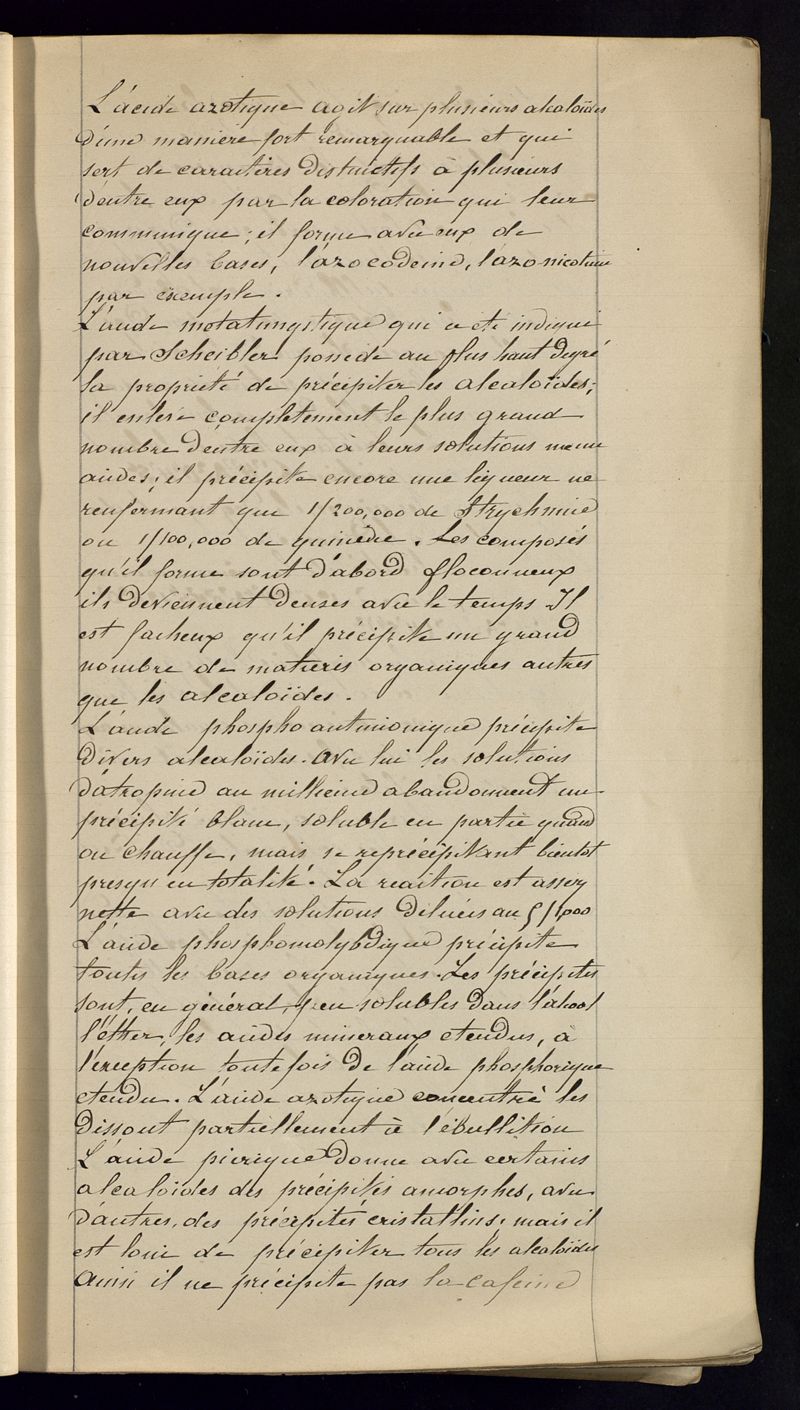 L'acide azotique agit sur plusieurs alcaloïdes
d'une maniere fort remarquable et qui
sert de caractères distinctifs à plusieurs
d'entre eux par la coloration qui leur
communique; il forme avec eux de
nouvelles bases, l'azocodeine, l'azonicotine
par exemple.
L'acide metatungstique qui a été indiqué
par Scheibler possede au plus haut degré
la propriété de précipiter les alcaloïdes;
il enlève complètement le plus grand
nombre d'entre eux à leurs solutions meme
acides; il précipite encore une liqueur ne
renfermant que 1/200,000 de Strychnine
ou 1/100,000 de quinine. Les composés
qu'il forme sont d'abord floconneux
ils deviennent denses avec le temps Il
est facheux qu'il précipite un grand
nombre de matieres organiques autres
que les alcaloïdes.
L'acide phospho antimonique précipite
divers alcaloïdes. Avec lui les solutions
d'atropine au millieme abandonnent un
précipité blanc, soluble en partie quand
on chauffe, mais se reprécipitant bientot
presqu'en totalité. La reaction est assez
nette avec des solutions diluées au 5/1000
L'acide phosphomolybdique précipite
toutes les bases organiques. Les précipités
sont, en général, peu solubles dans l'alcool
l'éther, les acides mineraux etendus, à
l'exception toutefois de l'acide phosphorique
etendu. L'acide azotique concentré les
dissout partiellement à l'ébullition
L'acide picrique donne avec certains
alcaloïdes des précipités amorphes, avec
d'autres, des précipités cristallins; mais il
est loin de précipiter tous les alcaloïdes
Ainsi il ne précipite pas la caféine